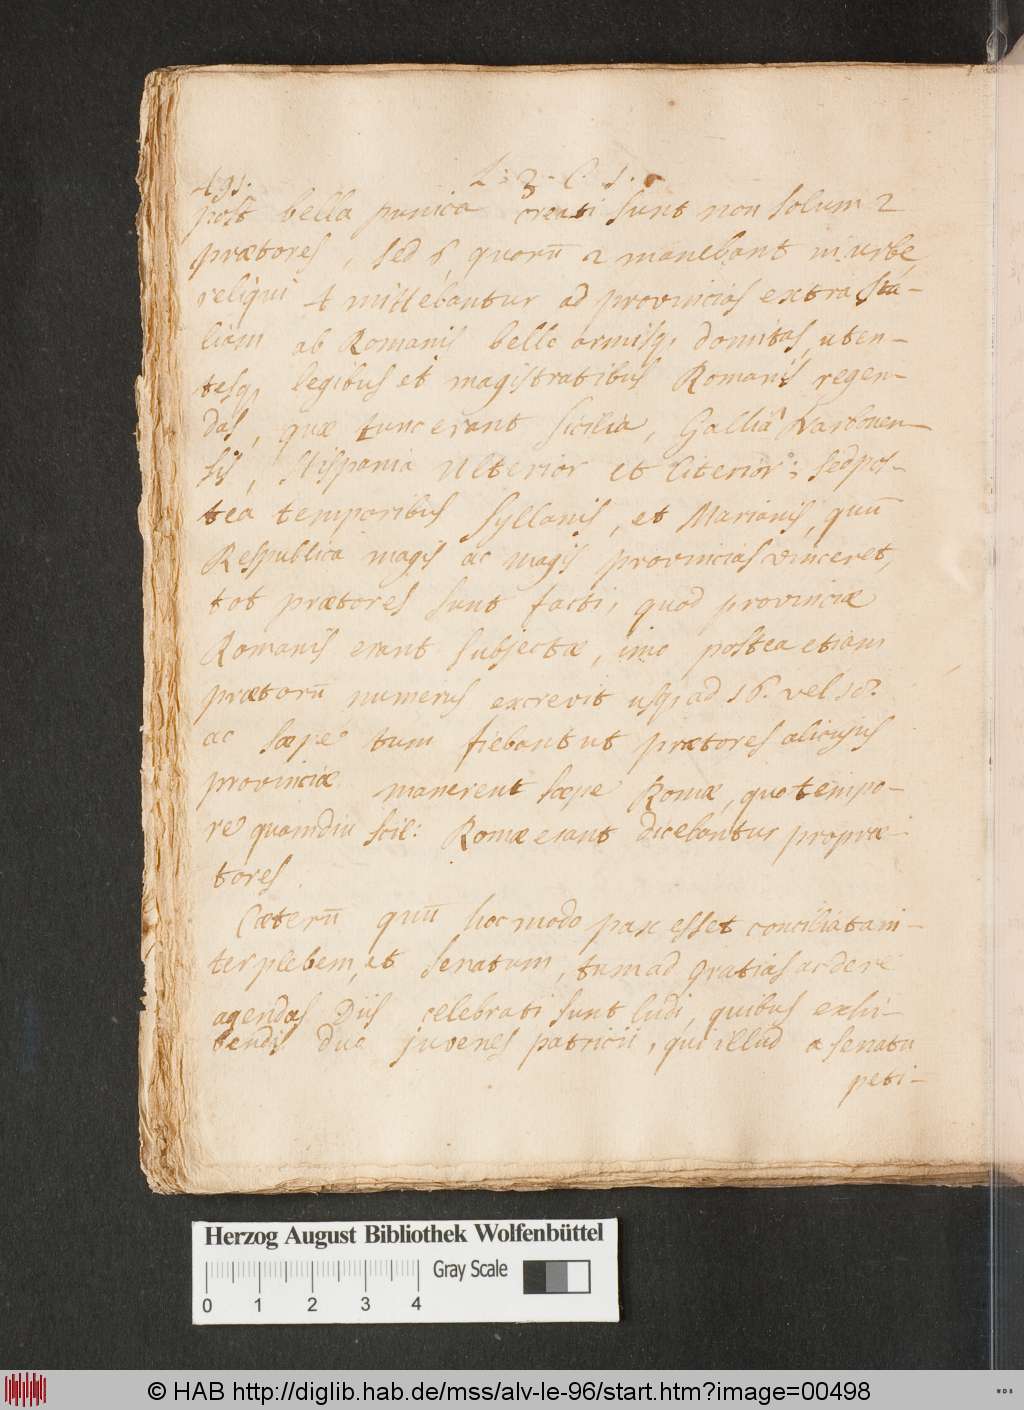 491.
L: 3. C. 1.
post bella punica creati sunt non solum 2
prætores, sed 6, quorũ 2 manebant in urbe,
reliqui 4 mittebantur ad provincias extra Ita-
liam ab Romanis bello armisq, domitas, uten-
tesq, legibus et magistratibus Romanis regen-
das, quæ tunc erant Sicilia, Gallia Narbonen-
sis, Hispania Ulterior et Citerior; sed pos-
tea temporibus Syllanis, et Marianis, quũ
Respublica magis ac magis provincias vinceret,
tot prætores sunt facti, quod provinciæ
Romanis erant subjectæ, imo postea etiam
prætorũ numerus excrevit usq, ad 16. vel 18.
ac sæpe tum fiebant ut prætores alicujus
provinciæ manerent sæpe Romæ, quo tempo-
re quamdiu scil: Romæ erant dicebantur propræ-
tores.
Cæterũ quũ hoc modo pax esset conciliata in-
ter plebem, et senatum, tum ad gratias
agendas Diis celebrati sunt ludi, quibus exhi-
bendis duo juvenes patricii, qui illud a senatu
peti-
Herzog August Bibliothek Wolfenbüttel
Gray Scale
0 1 2 3 4
© HAB http://diglib.hab.de/mss/alv-le-96/start.htm?image=00498